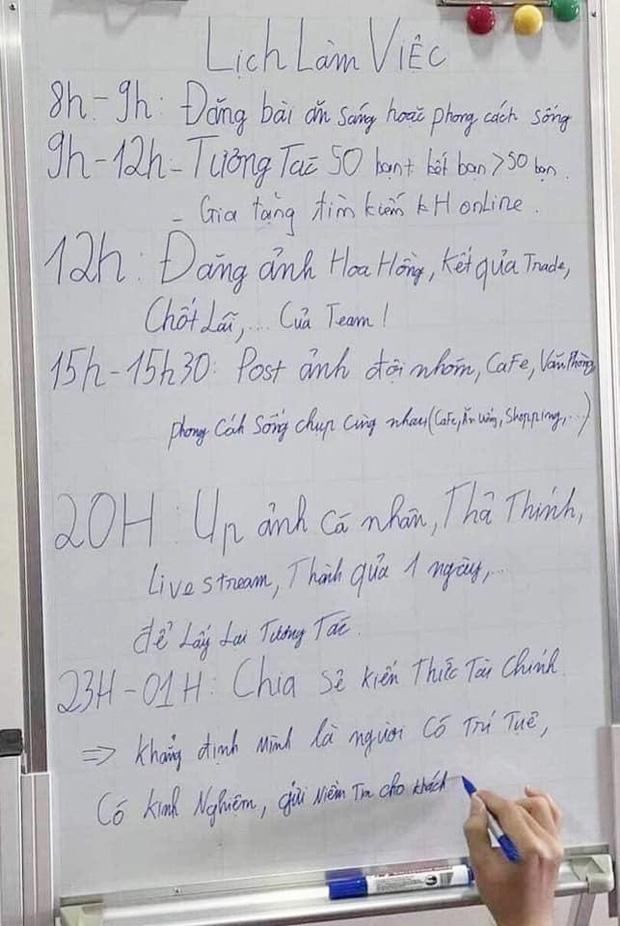 Lịch Làm Việc
8h-9h: Đăng bài ăn sáng hoặc phong cách sống
9h-12h - Tương Tác 50 bạn + kết bạn > 50 bạn.
- Gia tăng tìm kiếm KH online.
12h: Đăng ảnh Hoa Hồng, Kết quả Trade,
Chốt Lãi,... Của Team!
15h-15h30: Post ảnh đội nhóm, CaFe, Văn Phòng
phong Cách Sống chụp Cùng nhau (CaFe, Ăn uống, Shopping,...)
20H: Up ảnh cá nhân, Thả Thính,
Live stream, Thành quả 1 ngày,...
để Lấy Lại Tương Tác.
23H-01H: Chia Sẻ Kiến Thức Tài Chính.
=> Khẳng định Mình là người Có Trí Tuệ,
Có Kinh Nghiệm, gửi Niềm Tin cho khách